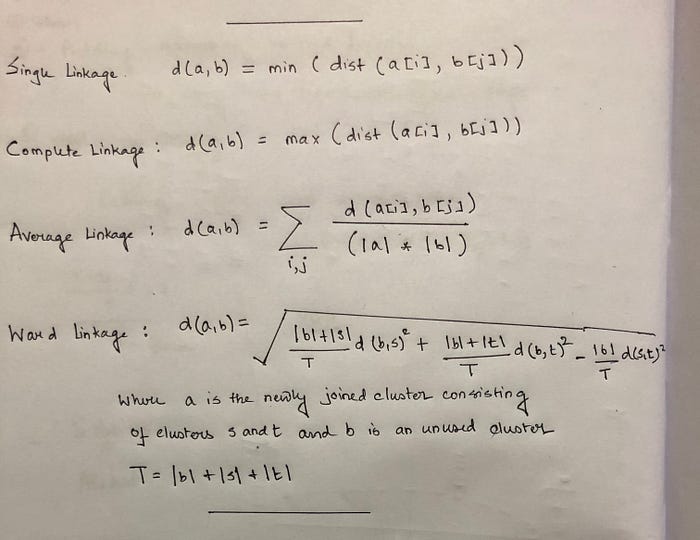 Single Linkage. d(a,b) = min ( dist (a[i], b[j]))
Complete Linkage : d(a,b) = max (dist (a[i], b[j]))
Average Linkage : d(a,b) = ∑_{i,j} d(a[i], b[j]) / (|a| * |b|)
Ward linkage : d(a,b) = √( |b|+|s| / T d(b,s)² + |b|+|t| / T d(b,t)² - |b| / T d(s,t)² )
Where a is the newly joined cluster consisting
of clusters s and t and b is an unused cluster
T = |b| + |s| + |t|